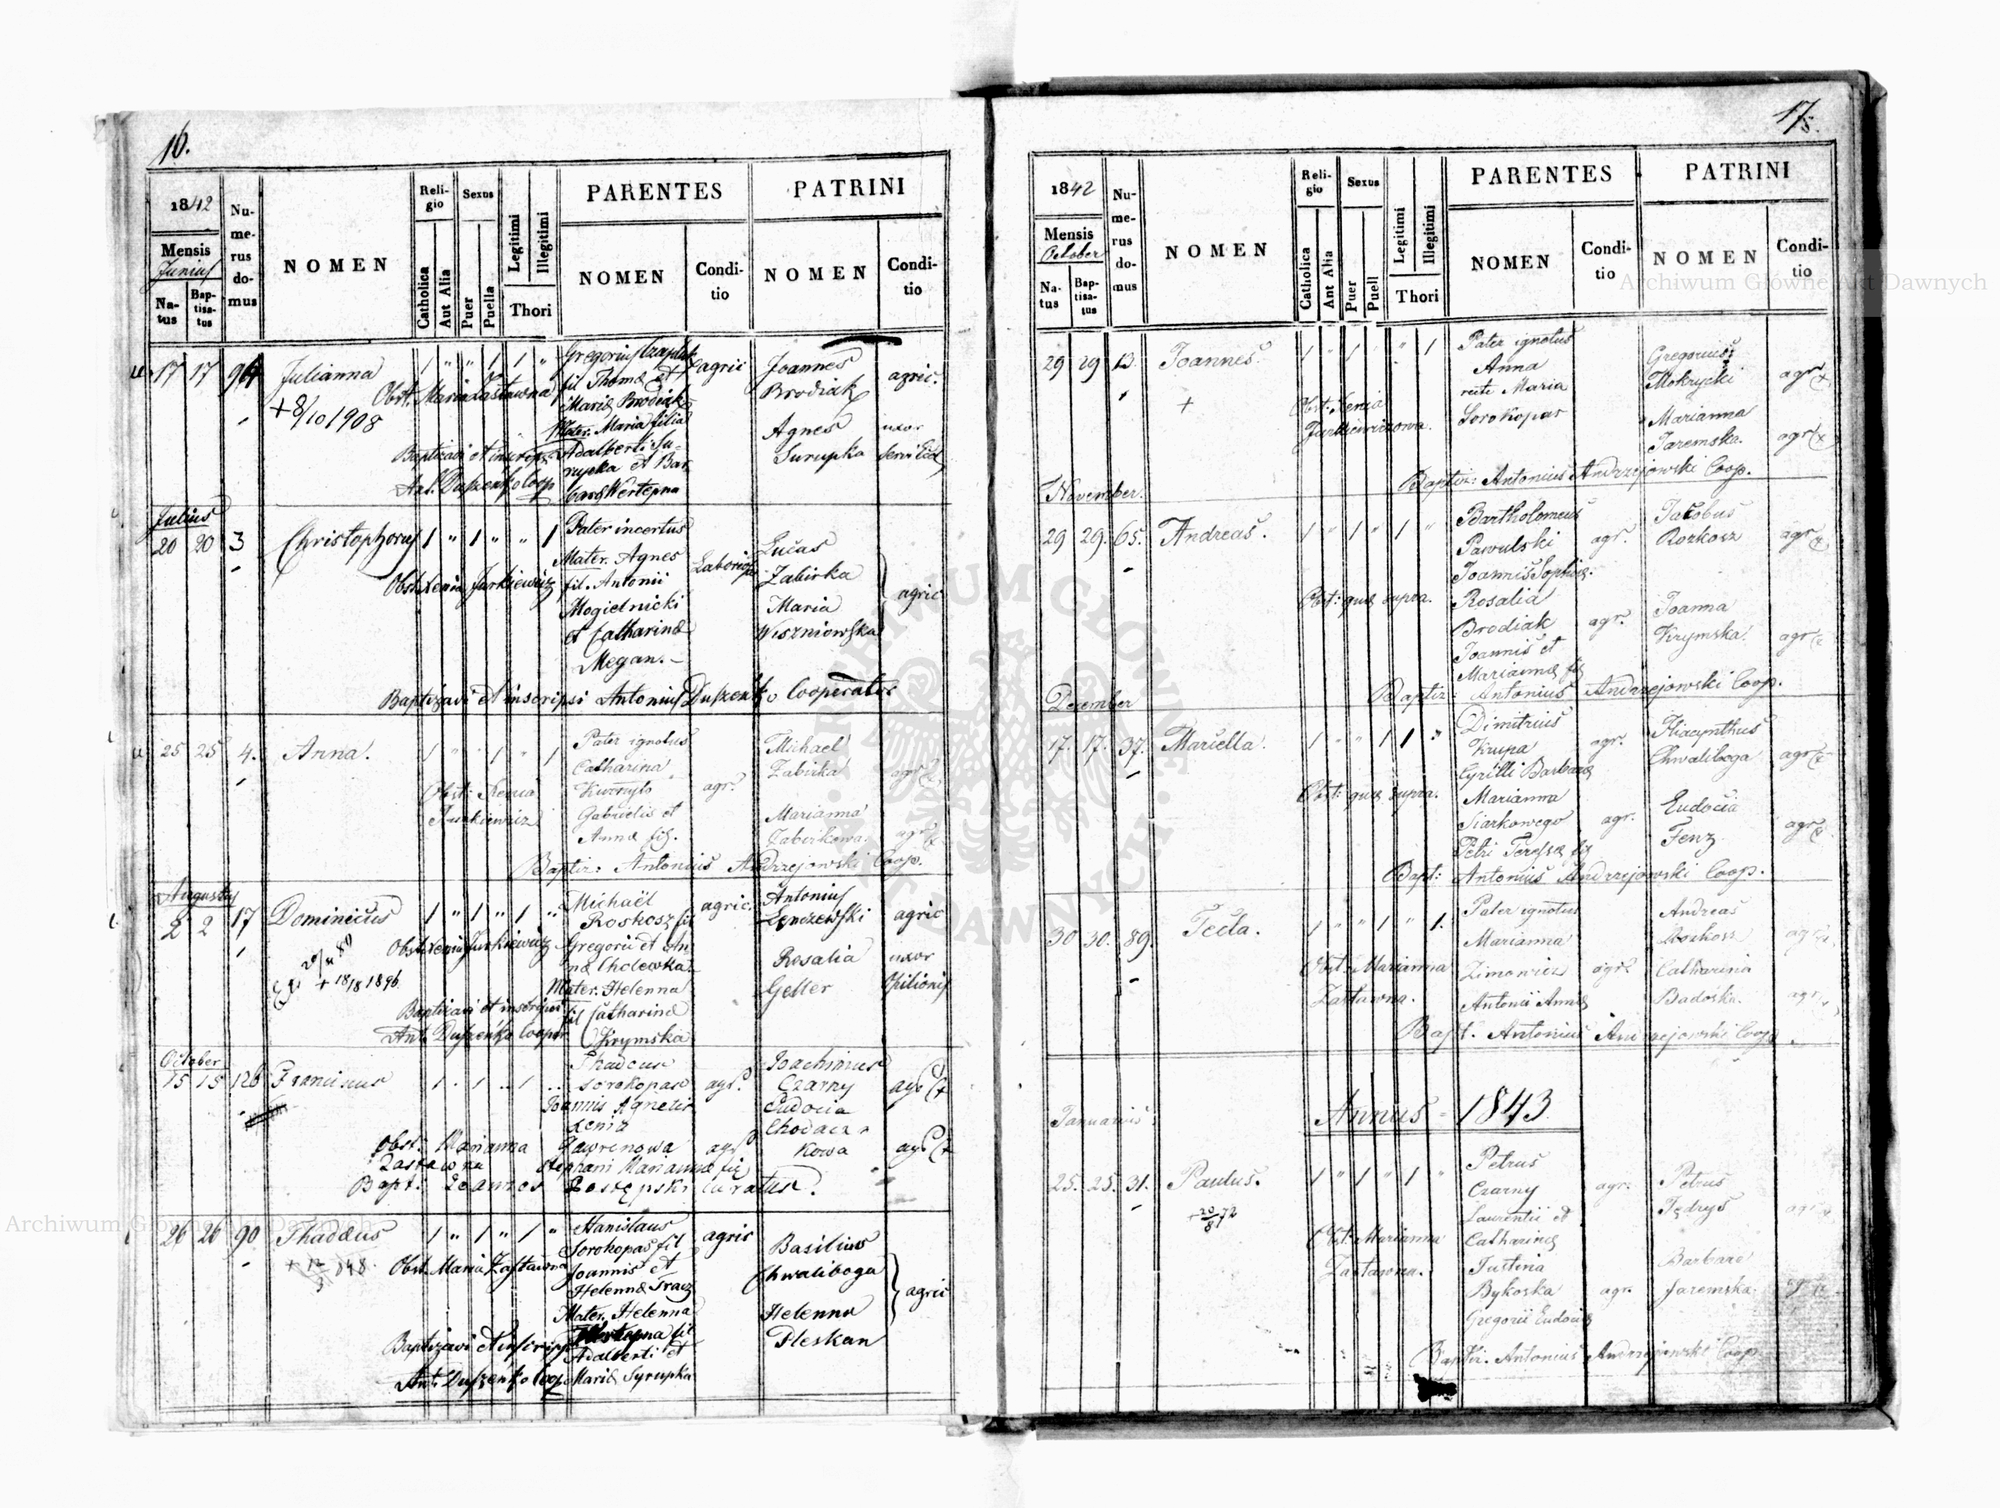 16.
1842
Mensis
Junius
Na-
tus
Bap-
tisa-
tus
Nu-
me-
rus
do-
mus
NOMEN
Reli-
gio
Catholica
Aut Alia
Sexus
Puer
Puella
Legitimi
Illegitimi
Thori
PARENTES
NOMEN
Condi-
tio
PATRINI
NOMEN
Condi-
tio
17 17 94 Julianna 1 " " 1 1 "
+8/10 1908
Obst. Maria Zastawna
Gregorius
fil Thomæ et
Mariæ Brodiak
Mater. Maria filia
Adalberti Su-
rupka et Bar
baræ Wertepna
agric
Joannes
Brodiak
agric.
Agnes
Surupka
uxor
Baptizavi et inscripsi
Ant. Duszenko Coop
Julius
20 20 3 Christophorus 1 " 1 " " 1
Obst. Xenia Jurkiewicz
Pater incertus
Mater. Agnes
fil. Antonii
Mogielnicki
et Catharinæ
Megan.-
Lucas
Zabirka
Maria
Wiszniowska
agric
Baptizavi et inscripsi Antonius Duszenko Cooperator
25 25 4. Anna. 1 " " 1 " 1
Obst: Xenia
Jurkiewicz
Pater ignotus
Catharina
Gabrielis et
Annæ fil.
agr.
Michael
Zabirka
Marianna
Zabirkowa.
agr.
Baptiz: Antonius Andrzejowski Coop.
Augustus
2 2 17 Dominicus 1 " 1 " 1 "
+ 18/8 1896
Obst. Xenia Jurkiewicz
Michaël
Roskosz fil
Gregorii et An
næ Cholewka
Mater. Helenna
fil Catharinæ
Krymska
agric.
Antonius
agric
Rosalia
Geller
uxor
Baptizavi et inscripsi
Ant. Duszenko Cooper
October
15 15 126 Franciscus 1 . 1 .. 1 ..
Thadeus
Sorokopas
Joannis Agnetis
Xenia
Lawrenowa
Stephani Mariannæ fil
agr.
Joachimus
Czarny
Eudocia
Chodacz
Kowa
agr
Obst: Marianna
Zastawna
Bapt: Joannes Postępski curatus.
26 26 90 Thaddæus 1 " 1 " 1 "
Obst. Maria Zastawna
Stanislaus
Sorokopas fil
Joannis et
Helennæ
Mater. Helenna
Adalberti et
Mariæ Syrupka
agric
Basilius
Chwaliboga
Helenna
Pleskan
agric
Baptizavi et inscripsi
Ant. Duszenko Coop
17.
1842
Mensis
October
Na-
tus
Bap-
tisa-
tus
Nu-
me-
rus
do-
mus
NOMEN
Reli-
gio
Catholica
Ant Alia
Sexus
Puer
Puell
Legitimi
Illegitimi
Thori
PARENTES
NOMEN
Condi-
tio
PATRINI
NOMEN
Condi-
tio
29 29 13. Joannes. 1 " 1 " 1
+
Obst: Xenia
Jurkiewiczowa.
Pater ignotus
Anna
recte Maria
Sorokopas
Gregorius
Mokrycki
agr.
Marianna
Jaremska.
agr
Baptiz: Antonius Andrzejowski Coop.
November.
29 29. 65. Andreas. 1 " 1 " 1 "
Obst: quæ supra.
Bartholomeus
Pawulski
Joannis Sophiæ.
Rosalia
Brodiak
Joannis et
Mariannæ fil
agr.
agr.
Jacobus
Rozkosz
Joanna
Krymska
agr
agr
Baptiz: Antonius Andrzejowski Coop.
December
17. 17. 37. Mariella. 1 " " 1 1 "
Obst: quæ supra.
Dimitrius
Krupa
Cyrilli Barbaræ
Marianna
Siarkowego
Petri Teresæ fil
agr.
agr.
Hiacynthus
Chwaliboga
Eudocia
Fenz
agr
agr
Bapt: Antonius Andrzejowski Coop.
30 30. 89. Tecla. 1 " 1 " 1.
Obst: Marianna
Zastawna.
Pater ignotus
Marianna
Zimowicz
Antonii Annæ
agr.
Andreas
Rozkosz
Catharina
Badoska.
agr
agr.
Bapt. Antonius Andrzejowski Coop.
Annus - 1843
Januarius
25. 25. 31. Paulus. 1 " 1 " 1 "
+ 20/8 72
Obst: Marianna
Zastawna.
Petrus
Czarny
Laurentii et
Catharinæ
Justina
Bykoska
Gregorii Eudociæ
agr.
agr.
Petrus
Fedrys
Barbara
Jaremska.
Baptiz. Antonius Andrzejowski Coop
Archiwum Główne Akt Dawnych
Archiwum Główne Akt Dawnych
ARCHIWUM GŁÓWNE AKT DAWNYCH